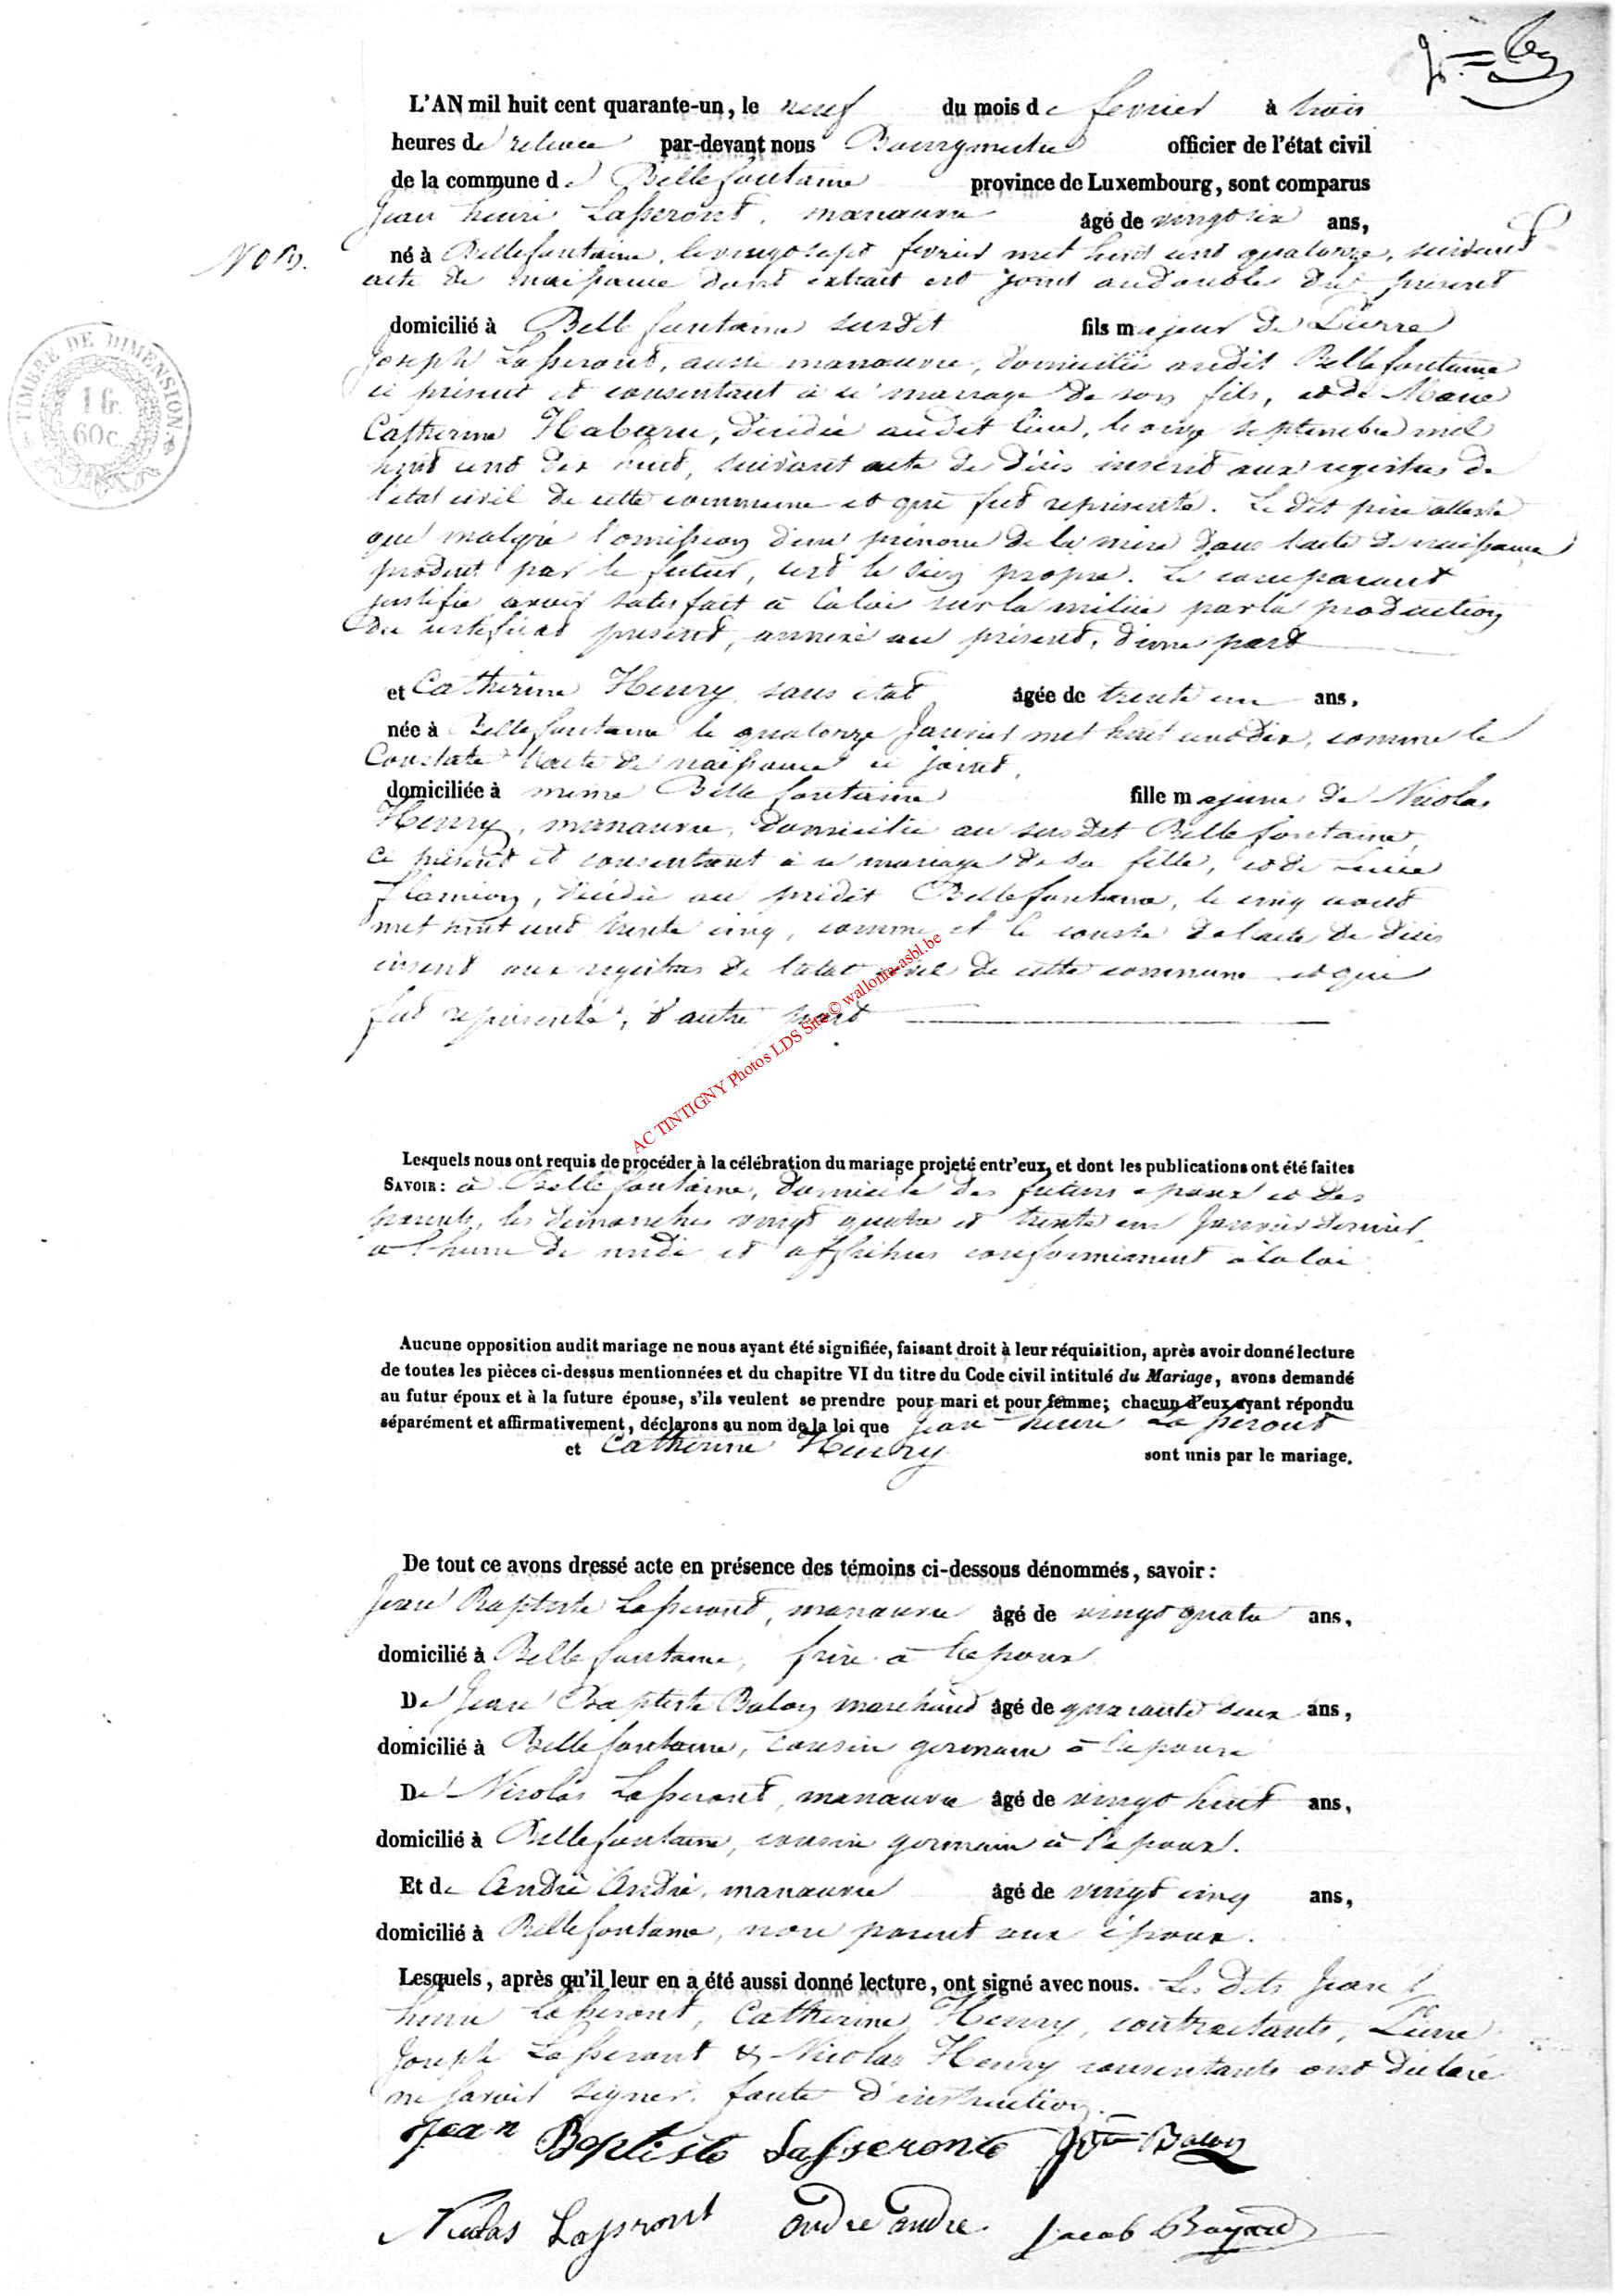 L'AN mil huit cent quarante-un, le neuf du mois de fevrier à trois
heures de relevee par-devant nous Bourgmestre officier de l'état civil
de la commune de Bellefontaine province de Luxembourg, sont comparus
Jean henri Lasseront, manœuvre âgé de vingt six ans,
No 3.
né à Bellefontaine, le vingt sept fevrier mil huit cent quatorze, suivant
acte de naissance dont extrait est joint au double du présent
TIMBRE DE DIMENSION
1 fr.
60 c.
domicilié à Bellefontaine susdit fils majeur de Pierre
Joseph Lasseront, aussi manœuvre, domicilié audit Bellefontaine
ci présent et consentant à ce mariage de son fils, et de Marie
Catherine Habaru, décédée audit lieu, le onze septembre mil
huit cent dix huit, suivant acte de décès inseré aux registres de
l'état civil de cette commune et qui fut representé. Le dit père atteste
que malgré l'omission d'un prénom de la mère dans l'acte de naissance
produit par le futur, c'est le sien propre. Le comparant
justifie avoir satisfait à la loi sur la milice par la production
du certificat présent, annexé au présent, d'une part
et Catherine Henry, sans état âgée de trente un ans,
née à Bellefontaine le quatorze Janvier mil huit cent dix, comme le
Constate l'acte de naissance ci joint,
domiciliée à meme Bellefontaine fille majeure de Nicolas
Henry, manœuvre, domicilié au susdit Bellefontaine,
ci présent et consentant à ce mariage de sa fille, et de
Flamion, décédée au prédit Bellefontaine, le cinq aout
mil huit cent trente cinq, comme il le conste de l'acte de décès
inseré aux registres de l'état civil de cette commune et qui
fut representé, d'autre part
AC TINTIGNY Photos LDS Site © wallonia-asbl.be
Lesquels nous ont requis de procéder à la célébration du mariage projeté entr'eux, et dont les publications ont été faites
SAVOIR: à Bellefontaine, domicile des futurs epoux et des
parents, les dimanches vingt quatre et trente un Janvier dernier,
a l'heure de midi et affichées conformément à la loi
Aucune opposition audit mariage ne nous ayant été signifiée, faisant droit à leur réquisition, après avoir donné lecture
de toutes les pièces ci-dessus mentionnées et du chapitre VI du titre du Code civil intitulé du Mariage, avons demandé
au futur époux et à la future épouse, s'ils veulent se prendre pour mari et pour femme; chacun d'eux ayant répondu
séparément et affirmativement, déclarons au nom de la loi que Jean henri Lasseront
et Catherine Henry sont unis par le mariage.
De tout ce avons dressé acte en présence des témoins ci-dessous dénommés, savoir:
Jean Baptiste Lasseront, manœuvre âgé de vingt quatre ans,
domicilié à Bellefontaine, frère à l'epoux
De Jean Baptiste Balon marchand âgé de quarante deux ans,
domicilié à Bellefontaine, cousin germain à l'epouse
De Nicolas Lasseront, manœuvre âgé de vingt huit ans,
domicilié à Bellefontaine, cousin germain à l'epoux.
Et de André André, manœuvre âgé de vingt cinq ans,
domicilié à Bellefontaine, non parent aux époux.
Lesquels, après qu'il leur en a été aussi donné lecture, ont signé avec nous. Les dits Jean
henri Lasseront, Catherine Henry, contractants, Pierre
Joseph Lasseront & Nicolas Henry consentants ont déclaré
ne savoir signer faute d'instruction.
Jean Baptiste Lasseront Jb Balon
Nicolas Lasseront andre andre Jacob Bayard